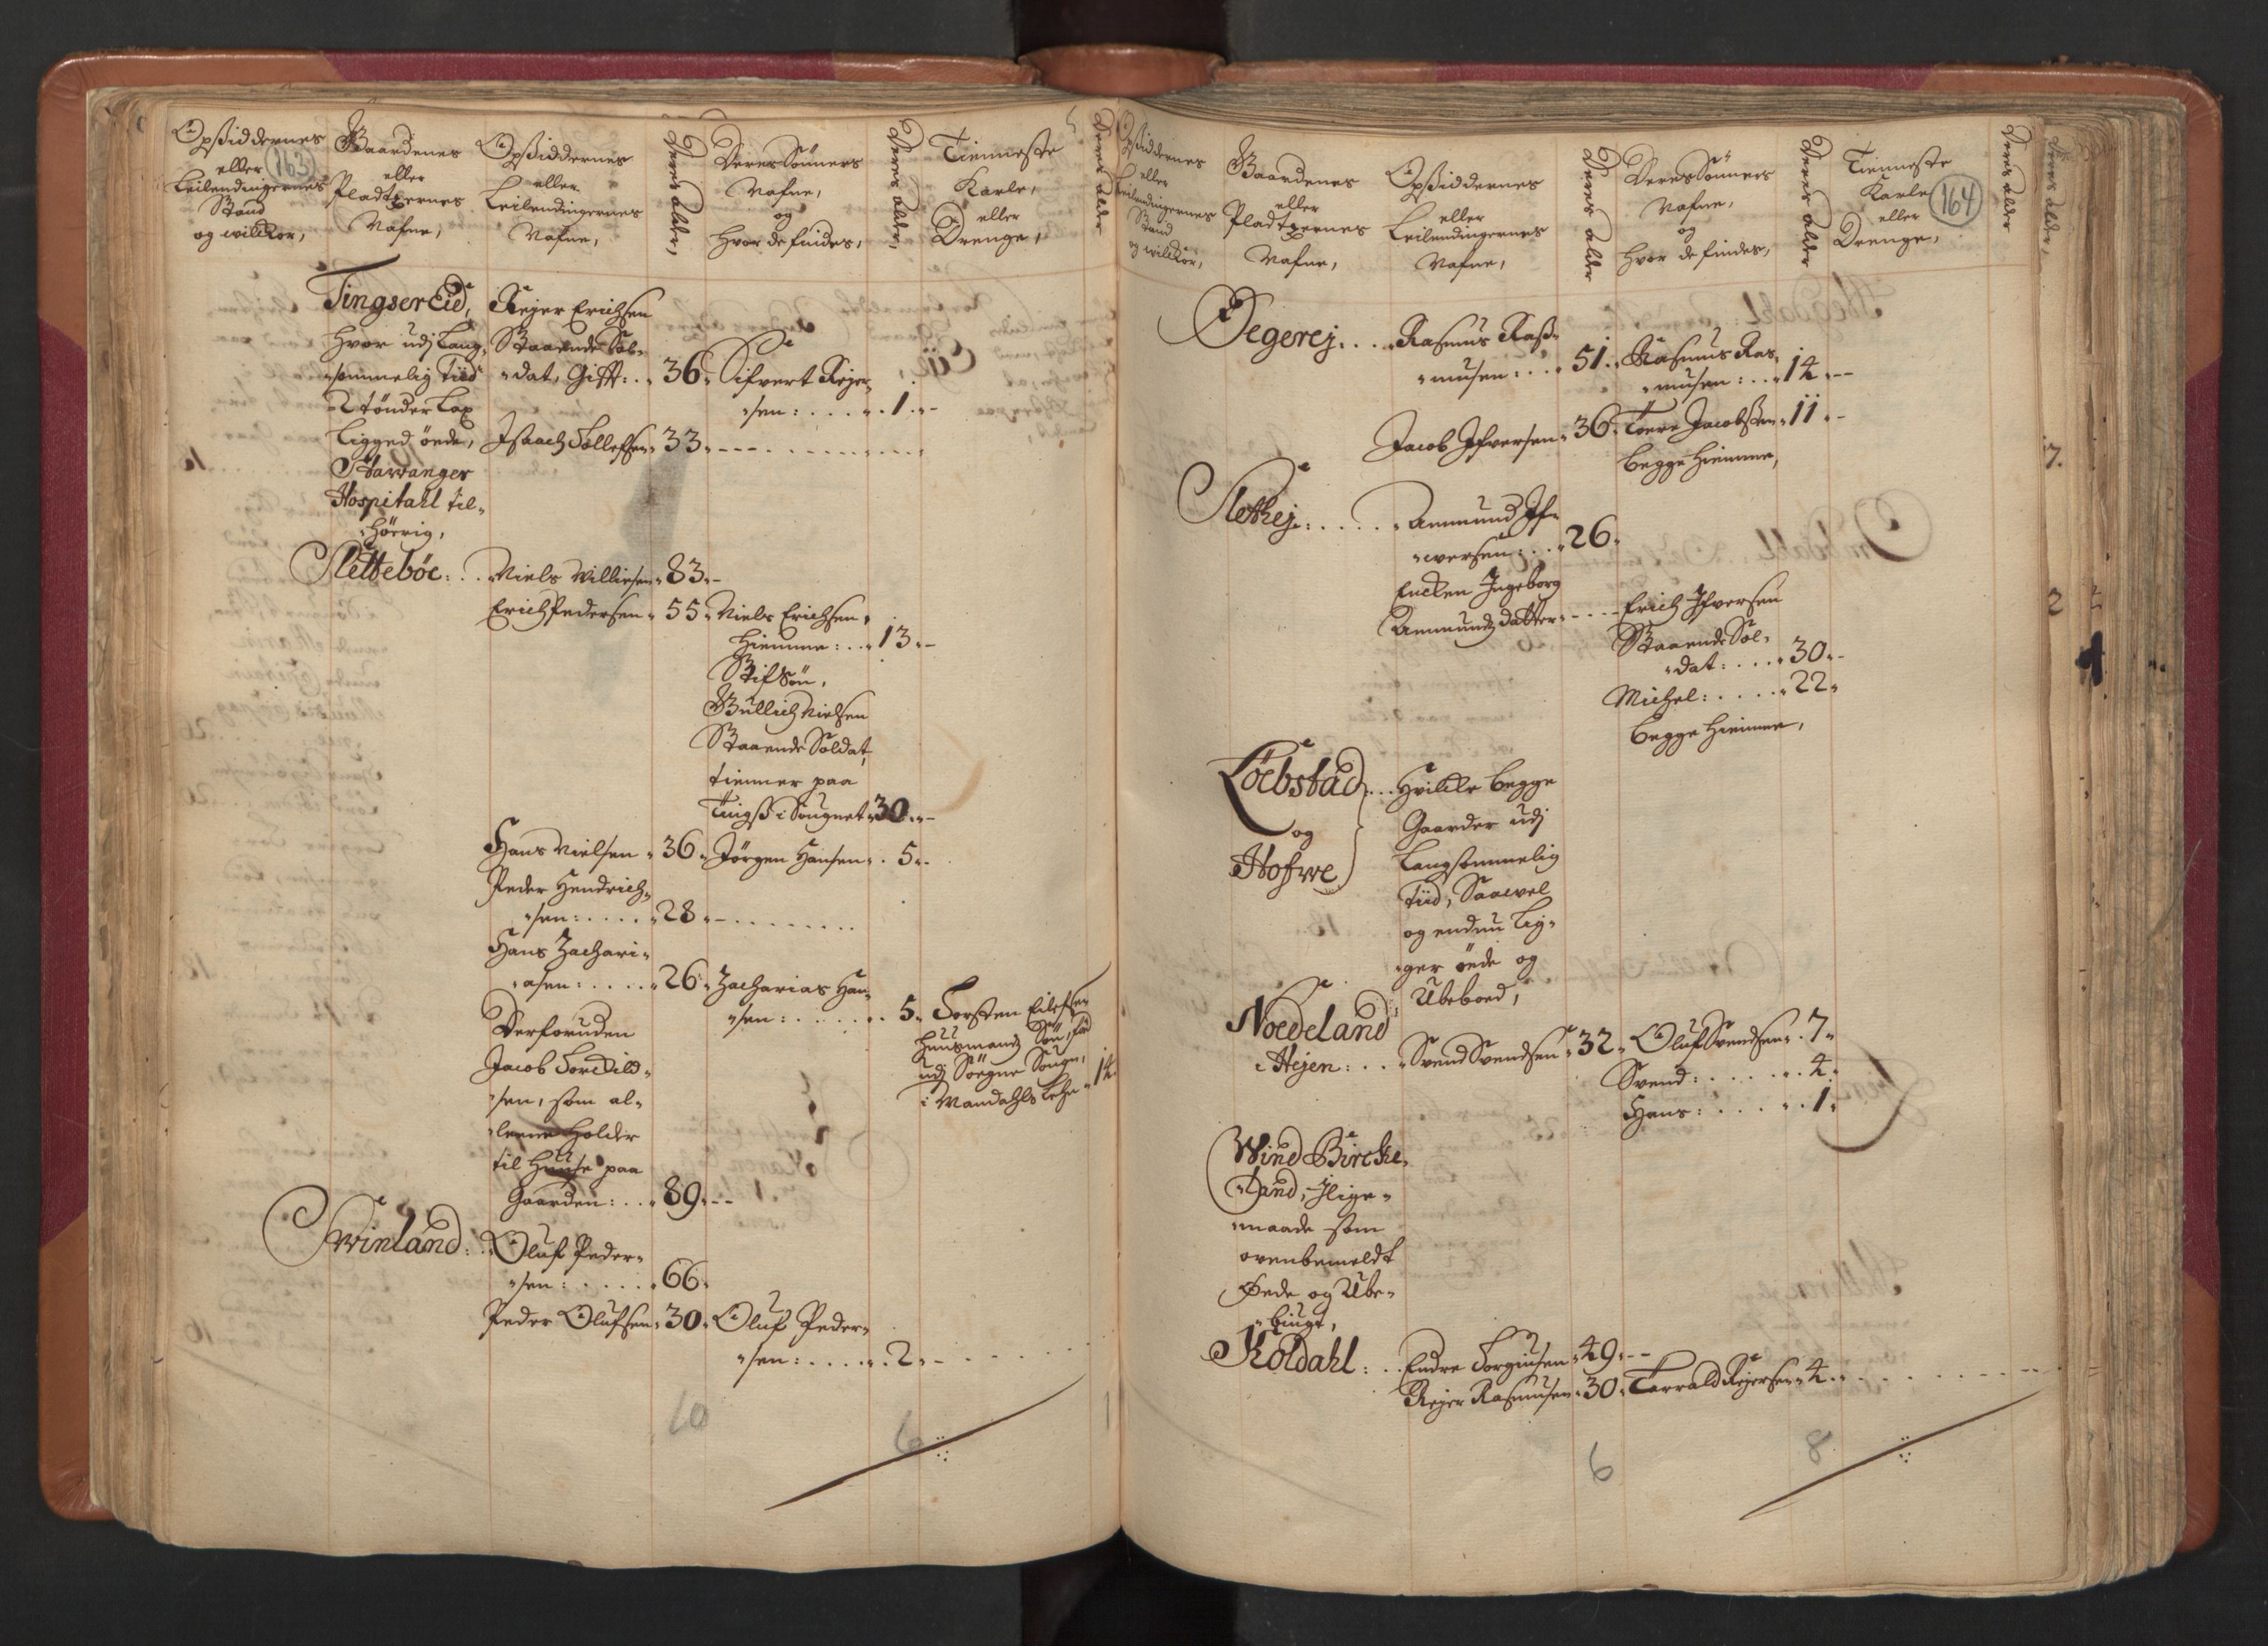 Opsiddernes
eller
Leilendingernes
Stand
og willkor,
163
Gaardenes
eller
Pladtzernes
Nafne,
Opsiddernes
eller
Leilendingernes
Nafne,
Deres alder,
Deres Sönners
Nafne,
og
hvor de findes,
Deres alder,
Tienneste
Karle,
eller
Drenge,
Deres alder
Tingsereid,
hvor udj lang-
sommelig Tiid
2 tönder lax
Ligged öede,
Stawanger
Hospitahl til-
hörrig,
Rejer Erichsen
Staaende Sol-
dat, Gift: 36. Sifvert Rejer-
sen: 1.
Isaach Tollefsen 33.
Sletteböe: Niels Willumsen 83.
Erich Pedersen 55 Niels Erichsen,
hiemme: 13.
Stifsön,
Gullich Nielsen
Staaende Soldat,
tienner paa
Tingss i Sougnet 30.
Hans Nielsen 36. Jörgen Hansen 5.
Peder Hendrich-
sen: 28.
Hans Zachari-
asen: 26. Zacharias Han-
sen: 5. Torsten Eilefsen
huusmands Sön, föd
udj Söegne Sougn,
i Mandahls Lehn 14.
Derforuden
Jacob Torkild-
sen, som al-
leene holder
til huuse paa
Gaarden: 89.
Swinland: Oluf Peder-
sen: 66.
Peder Olufsen 30. Oluf Peder-
sen: 2.
10
6
1
Opsiddernes
eller
Leilendingernes
Stand
og willkor,
Gaardenes
eller
Pladtzernes
Nafne,
Opsiddernes
eller
Leilendingernes
Nafne,
Deres alder
Deres Sönners
Nafne,
og
hvor de findes,
Deres alder
Tienneste
Karle
eller
Drenge,
164
Deres alder
Deres alder,
Degerej Rasmus Rass-
musen: 51. Rasmus Ras-
musen: 14.
Jacob Ifversen 36. Toere Jacobssen 11.
begge hiemme,
Slethej: Ammund If-
wersen: 26.
Encken Ingeborg
Ammunds datter Erich Ifversen
Staaende Sol-
dat: 30.
Michel: 22.
begge hiemme,
Löebstad
og
Hofwe
Hvilke begge
Gaarder udj
langsommelig
Tiid, Saavel
og endnu Lig-
ger öede og
Ubeboed,
Noedeland
Hejen: Svend Svendsen 32. Oluf Svendsen 7.
Svend: 4.
Hans: 1.
Wind Bircke-
land, Ilige-
maade som
ovenbemeldt
Öede og Ube-
bugt,
Koldahl: Endre Torgiusen 49.
Rejer Rasmusen 30. Tarrald Rejersen 4.
6
8
7.
2